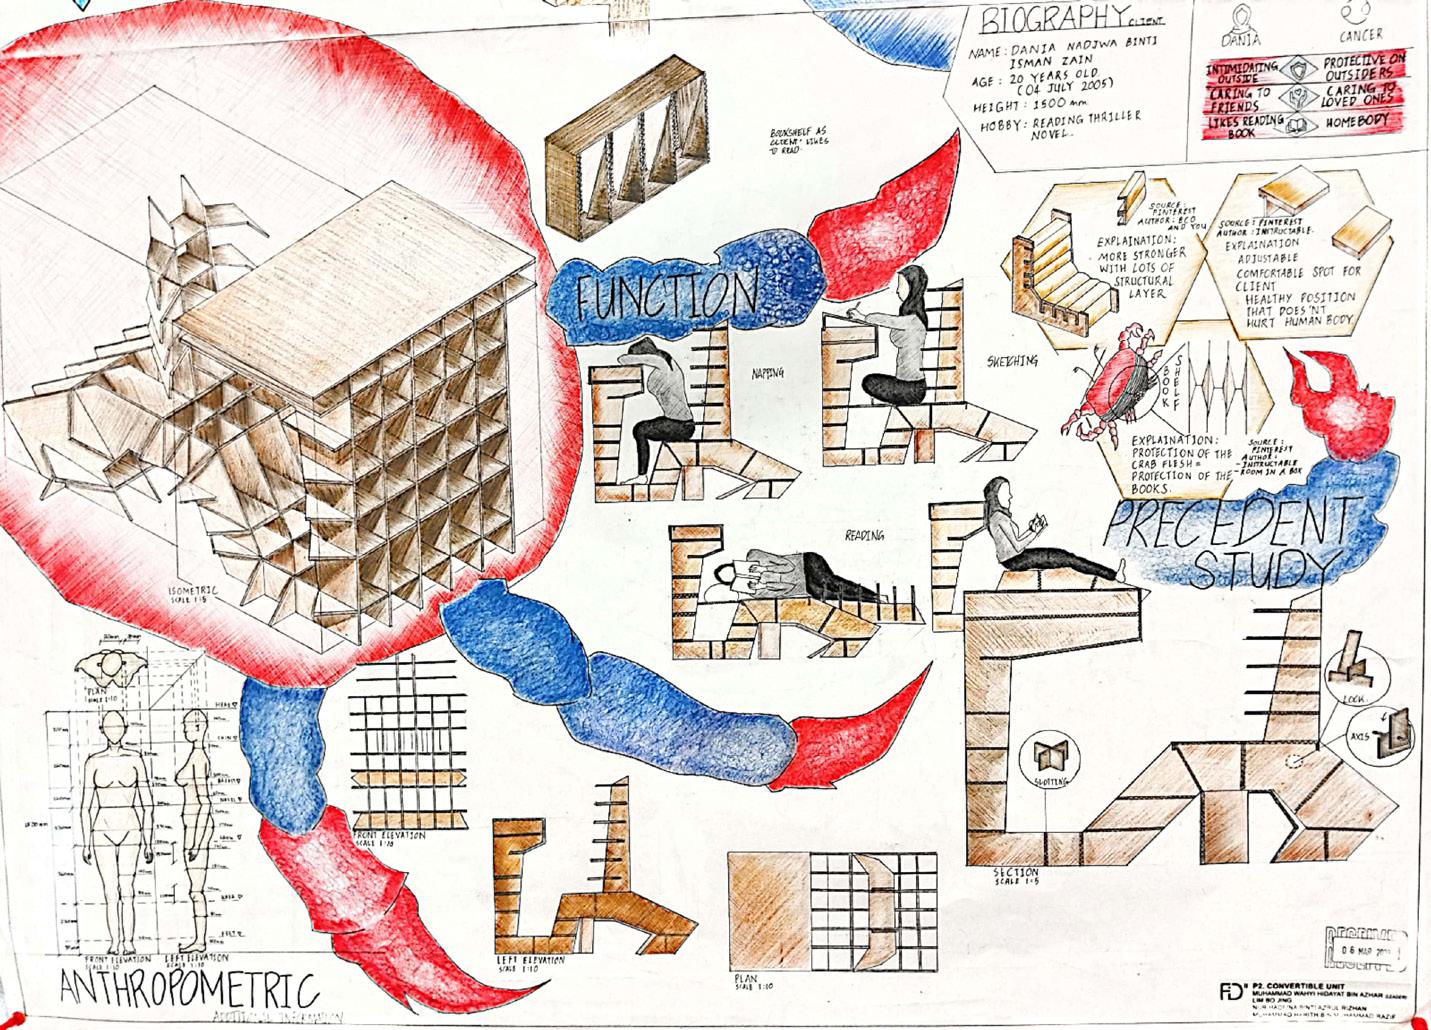 BIOGRAPHY CLIENT
NAME : DANIA NADJWA BINTI
ISMAN ZAIN
AGE : 20 YEARS OLD
(04 JULY 2005)
HEIGHT : 1500 mm
HOBBY : READING THRILLER
NOVEL.
DANIA
CANCER
INTIMIDATING
OUTSIDE
PROTECTIVE ON
OUTSIDERS
CARING TO
FRIENDS
CARING TO
LOVED ONES
LIKES READING
BOOK
HOMEBODY
BOOKSHELF AS
CLIENT LIKES
TO READ.
FUNCTION
NAPPING
SKETCHING
READING
SOURCE :
PINTEREST
AUTHOR : ECO
AND YOU
EXPLAINATION:
MORE STRONGER
WITH LOTS OF
STRUCTURAL
LAYER
SOURCE : PINTEREST
AUTHOR : INSTRUCTABLE.
EXPLAINATION
ADJUSTABLE
COMFORTABLE SPOT FOR
CLIENT
HEALTHY POSITION
THAT DOES'NT
HURT HUMAN BODY.
BOOK
SHELF
EXPLAINATION:
PROTECTION OF THE
CRAB FLESH =
PROTECTION OF THE
BOOKS.
SOURCE :
PINTEREST
AUTHOR :
- INSTRUCTABLE
- ROOM IN A BOX
PRECEDENT
STUDY
ISOMETRIC
SCALE 1:5
PLAN
SCALE 1:10
FRONT ELEVATION
SCALE 1:10
LEFT ELEVATION
SCALE 1:10
ANTHROPOMETRIC
ADDITIONAL INFORMATION
FRONT ELEVATION
SCALE 1:10
LEFT ELEVATION
SCALE 1:10
PLAN
SCALE 1:10
SLOTTING
LOCK
AXIS
SECTION
SCALE 1:5
06 MAR
FD P2. CONVERTIBLE UNIT
MUHAMMAD WAHYI HIDAYAT BIN AZHAR (LEADER)
LIM BO JING